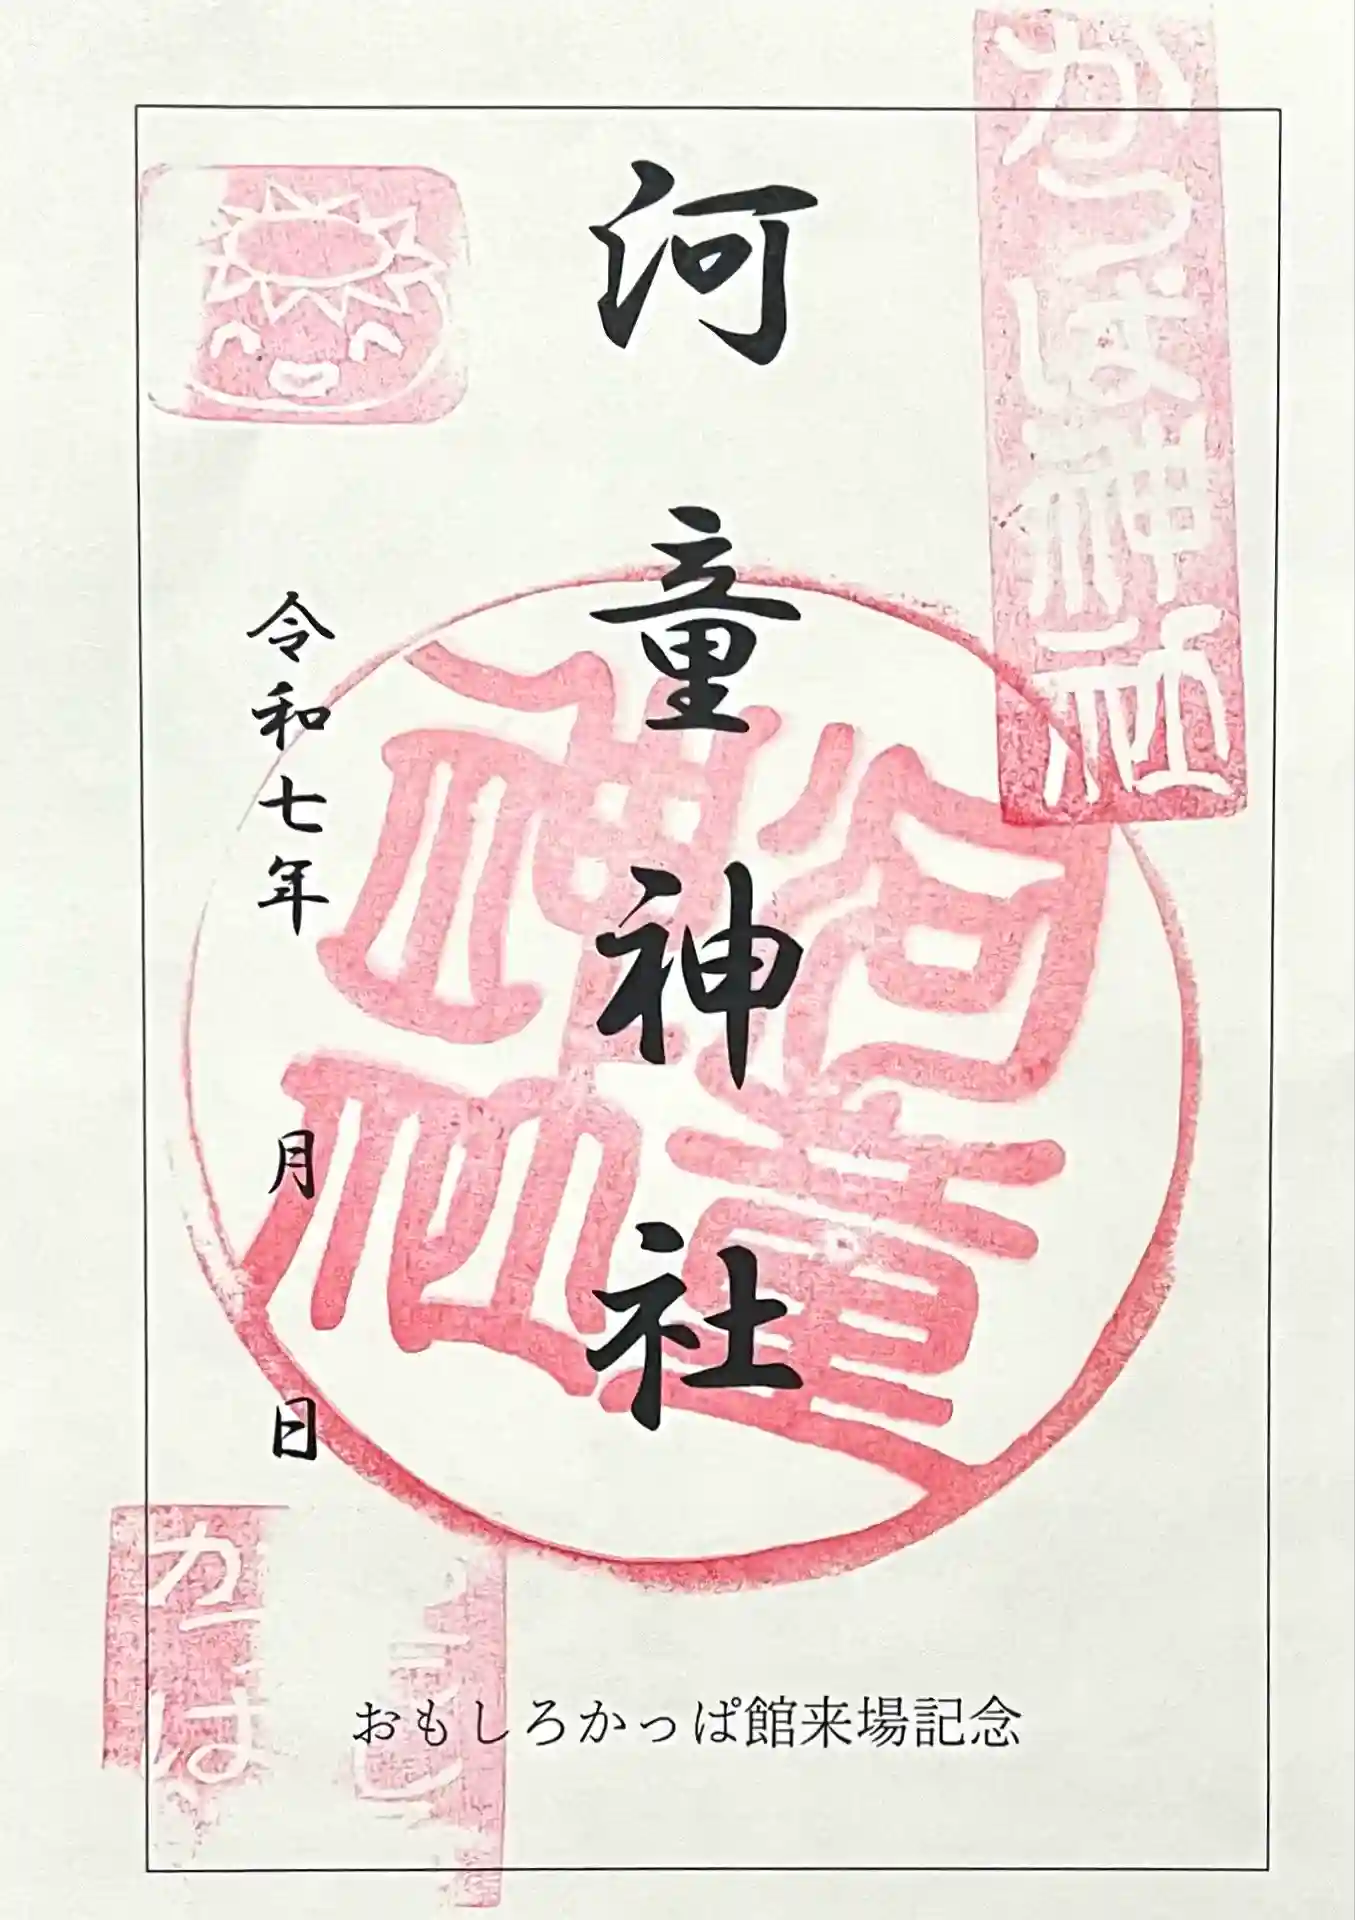 かっぱ神社
河童神社
河童
神社
令和七年 月 日
かっぱ
おもしろかっぱ館来場記念